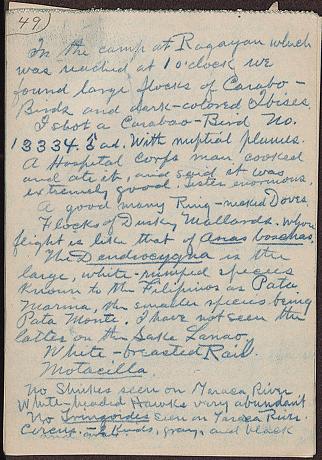 49)
In the camp at Ragayan which
was reached at 1 o'clock we
found large flocks of Carabo-
Birds and dark-colored Ibises.
I shot a Carabao-Bird No.
13334. ad. With nuptial plumes.
A Hospital Corps man, cooked
and ate it, and said it was
extremely good. Testes enormous.
A good many Ring-necked Doves
Flocks of Dusky Mallards. whose
flight is like that of Anas boschas.
The Dendrocygna is the
large, white-rumped species
known to the Filipinos as Pata
Marina, the smaller species being
Pata Monte. I have not seen the
latter on the Lake Lanao.
White-breasted Rail.
Motacilla.
No Shrikes seen on Taraca River
White-headed Hawks very abundant
No seen on Taraca River.
Circus - 2 kinds, gray, and black
and